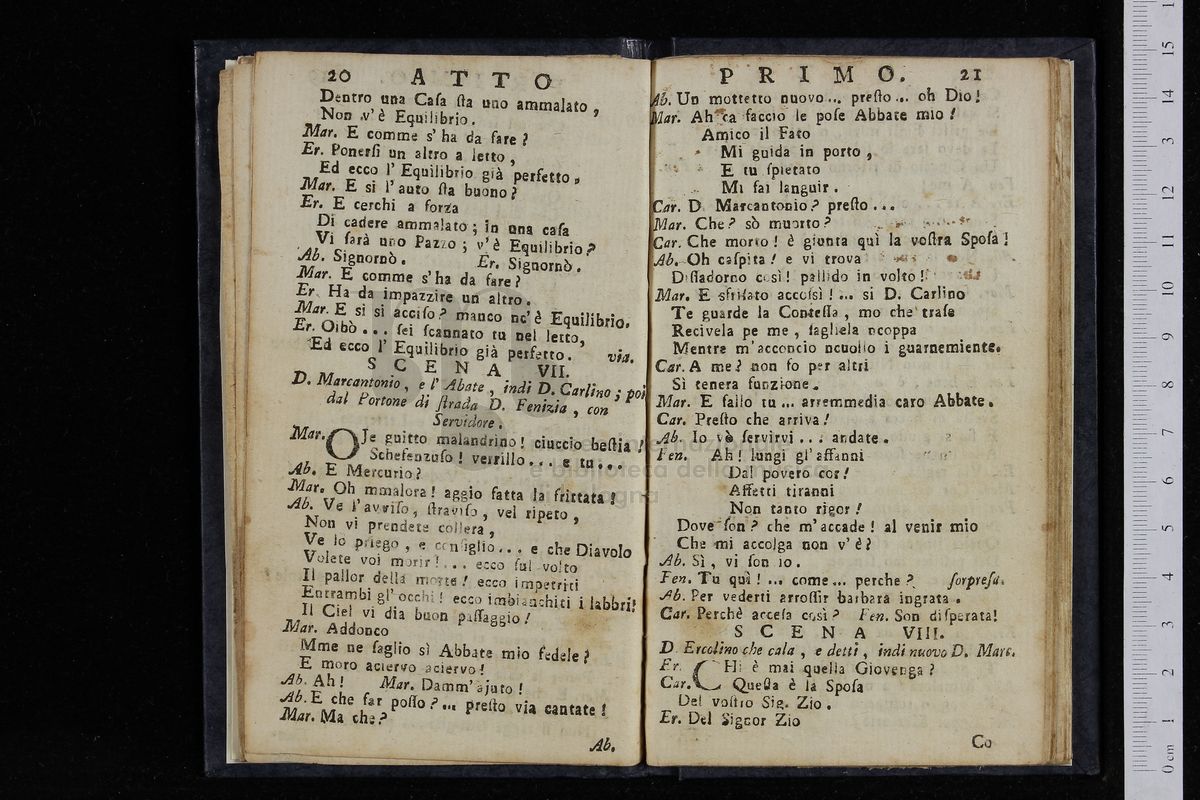 20 A T T O
Dentro una Casa sta uno ammalato,
Non v'è Equilibrio.
Mar. E comme s'ha da fare?
Er. Ponersi un altro a letto,
Ed ecco l'Equilibrio già perfetto.
Mar. E si l'auto sta buono?
Er. E cerchi a forza
Di cadere ammalato; in una casa
Vi sarà uno Pazzo; v'è Equilibrio?
Ab. Signornò. Er. Signornò.
Mar. E comme s'ha da fare?
Er. Ha da impazzire un altro.
Mar. E si si acciso? manco nc'è Equilibrio.
Er. Oibò... sei scannato tu nel letto,
Ed ecco l'Equilibrio già perfetto. via.
S C E N A VII.
D. Marcantonio, e l'Abate, indi D. Carlino; poi
dal Portone di strada D. Fenizia, con
Servidore.
Mar. OJe guitto malandrino! ciuccio bestia!
Schefenzuso! verrillo... e tu...
Ab. E Mercurio?
Mar. Oh mmalora! aggio fatta la frittata!
Ab. Ve l'avviso, straviso, vel ripeto,
Non vi prendete collera,
Ve lo priego, e consiglio... e che Diavolo
Volete voi morir!... ecco sul volto
Il pallor della morte! ecco impetriti
Entrambi gl'occhi! ecco imbianchiti i labbri!
Il Ciel vi dia buon passaggio!
Mar. Addonco
Mme ne saglio sì Abbate mio fedele?
E moro aciervo aciervo!
Ab. Ah! Mar. Damm'ajuto!
Ab. E che far posso?... presto via cantate!
Mar. Ma che?
Ab.
P R I M O. 21
Ab. Un mottetto nuovo... presto... oh Dio!
Mar. Ah ca faccio le pose Abbate mio!
Amico il Fato
Mi guida in porto,
E tu spietato
Mi fai languir.
Car. D. Marcantonio? presto...
Mar. Che? sò muorto?
Car. Che morto! è giunta quì la vostra Sposa!
Ab. Oh caspita! e vi trova
Disadorno così! pallido in volto!
Mar. E sfrisato accossì!... si D. Carlino
Te guarde la Contessa, mo che trase
Recivela pe me, sagliela ncoppa
Mentre m'acconcio ncuollo i guarnemiente.
Car. A me? non so per altri
Sì tenera funzione.
Mar. E fallo tu... arremmedia caro Abbate.
Car. Presto che arriva!
Ab. Io vò servirvi... andate.
Fen. Ah! lungi gl'affanni
Dal povero cor!
Affetti tiranni
Non tanto rigor!
Dove son? che m'accade! al venir mio
Che mi accolga non v'è?
Ab. Sì, vi son io.
Fen. Tu quì!... come... perche? sorpresa.
Ab. Per vederti arrossir barbara ingrata.
Car. Perchè accesa così? Fen. Son disperata!
S C E N A VIII.
D. Ercolino che cala, e detti, indi nuovo D. Marc.
Er. CHi è mai quella Giovenga?
Car. Questa è la Sposa
Del vostro Sig. Zio.
Er. Del Signor Zio
Co